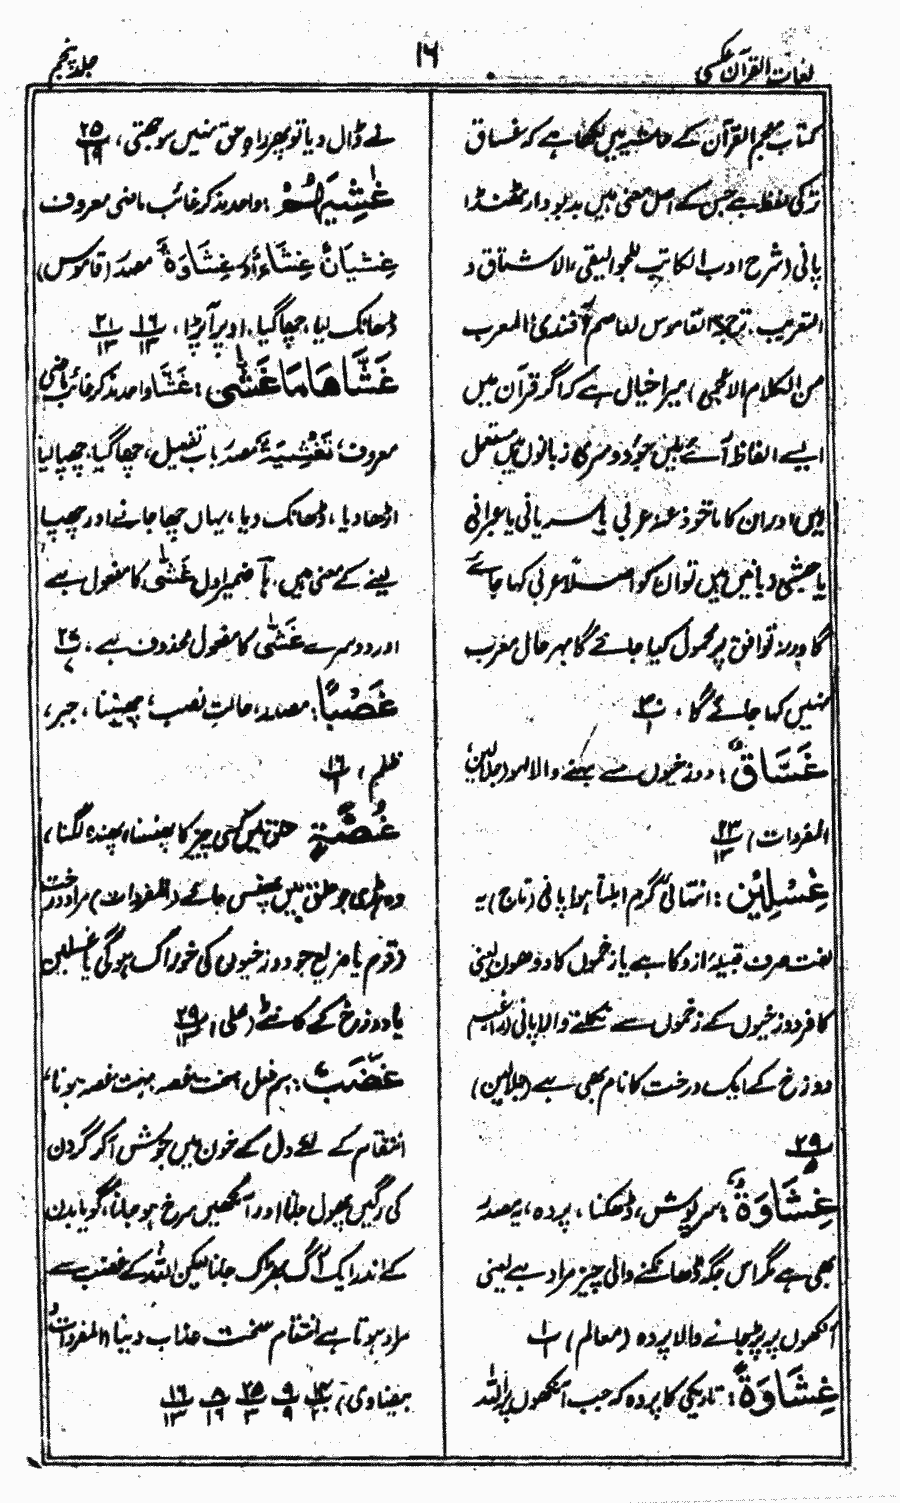 لغات القرآن عکسی
۱۶
جلد پنجم
کتاب معجم القرآن کے حاشیہ میں لکھا ہے کہ غساق
ترکی لفظ ہے جس کے اصل معنی ہیں بدبودار ٹھنڈا
پانی (شرح ادب الکاتب للجوالیقی، الاشتقاق و
التعریب، ترجمۃ القاموس لعاصم آفندی، المعرب
من الکلام الاعجمی) میرا خیال ہے کہ اگر قرآن میں
ایسے الفاظ آئے ہیں جو دوسری زبانوں میں مستعمل
ہیں اور ان کا ماخوذ عنہ عربی یا سریانی یا عبرانی
یا حبشی زبانیں ہیں تو ان کو اصلاً عربی کہا جائے
گا ورنہ توافق پر محمول کیا جائے گا بہر حال معرب
نہیں کہا جائے گا ،
غَسَّاقٌ : دوزخیوں سے بہنے والا لہو (جلالین،
المفردات) ۲۳ ۱۳
غِسْلِیْنٍ : انتہائی گرم ابلتا ہوا پانی (تاج) یہ
لغت صرف قبیلہ ازد کا ہے یا زخموں کا دوھون یعنی
کافر دوزخیوں کے زخموں سے نکلنے والا پانی (
دوزخ کے ایک درخت کا نام بھی ہے (جلالین)
۲۹ ۵
غِشَاوَةٌ : سرپوش، ڈھکنا، پردہ، یہ مصدر
بھی ہے مگر اس جگہ ڈھانکنے والی چیز مراد ہے یعنی
آنکھوں پر پڑ جانے والا پردہ (معالم) ۱ ۱
غِشَاوَةً : تاریکی کا پردہ کہ جب آنکھوں پر اللہ
نے ڈال دیا تو پھر راہ حق نہیں سوجھتی ، ۲۵ ۱۹
غَشِیَهُمْ : واحد مذکر غائب ماضی معروف
غِشْیَانٌ غِشَاءٌ اور غِشَاوَةٌ مصدر (قاموس)
ڈھانک لیا، چھا گیا، اوپر آپڑا ، ۱۶ ۱۳ ۲۱ ۱۳
غَشّٰهَا مَا غَشّٰی : غَشّٰا واحد مذکر غائب ماضی
معروف، تَغْشِیَةٌ مصدر باب تفعیل، چھا گیا، چھپا لیا
اڑھا دیا، ڈھانک دیا، یہاں چھا جانے اور چھپا
لینے کے معنی ہیں، ہا ضمیر اول غَشّٰی کا مفعول ہے
اور دوسرے غَشّٰی کا مفعول محذوف ہے ، ۲۷ ۷
غَصْبًا : مصدر، حالت نصب، چھیننا ، جبر،
ظلم ، ۱۶ ۱
غُصَّةٍ حلق میں کسی چیز کا پھنسنا، پھندہ لگنا،
وہ ہڈی جو حلق میں پھنس جائے (المفردات) مراد درخت
زقوم یا ضریع جو دوزخیوں کی خوراک ہوگی یا غسلین
یا دوزخ کے کانٹے (محلی) ۲۹ ۱۳
غَضَبٌ : اسم فعل، سخت غصہ، بہت غصہ ہونا،
انتقام کے لئے دل کے خون میں جوش آ کر گردن
کی رگیں پھول جانا اور آنکھیں سرخ ہو جانا، گویا بدن
کے اندر ایک آگ بھڑک جانا لیکن اللہ کے غضب سے
مراد ہوتا ہے انتقام سخت عذاب دینا (المفردات و
بیضاوی) ۹ ۹ ۲۵ ۳ ۵ ۱۹ ۱۶ ۱۳